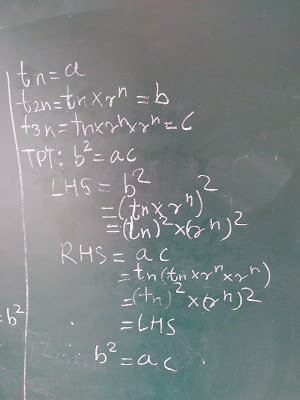 tn = a
t2n = tn × rⁿ = b
t3n = tn × rⁿ × rⁿ = c
TPT: b² = ac
LHS = b²
= (tn × rⁿ)²
= (tn)² × (rⁿ)²
RHS = ac
= tn (tn × rⁿ × rⁿ)
= (tn)² × (rⁿ)²
= LHS
∴ b² = ac
= b²